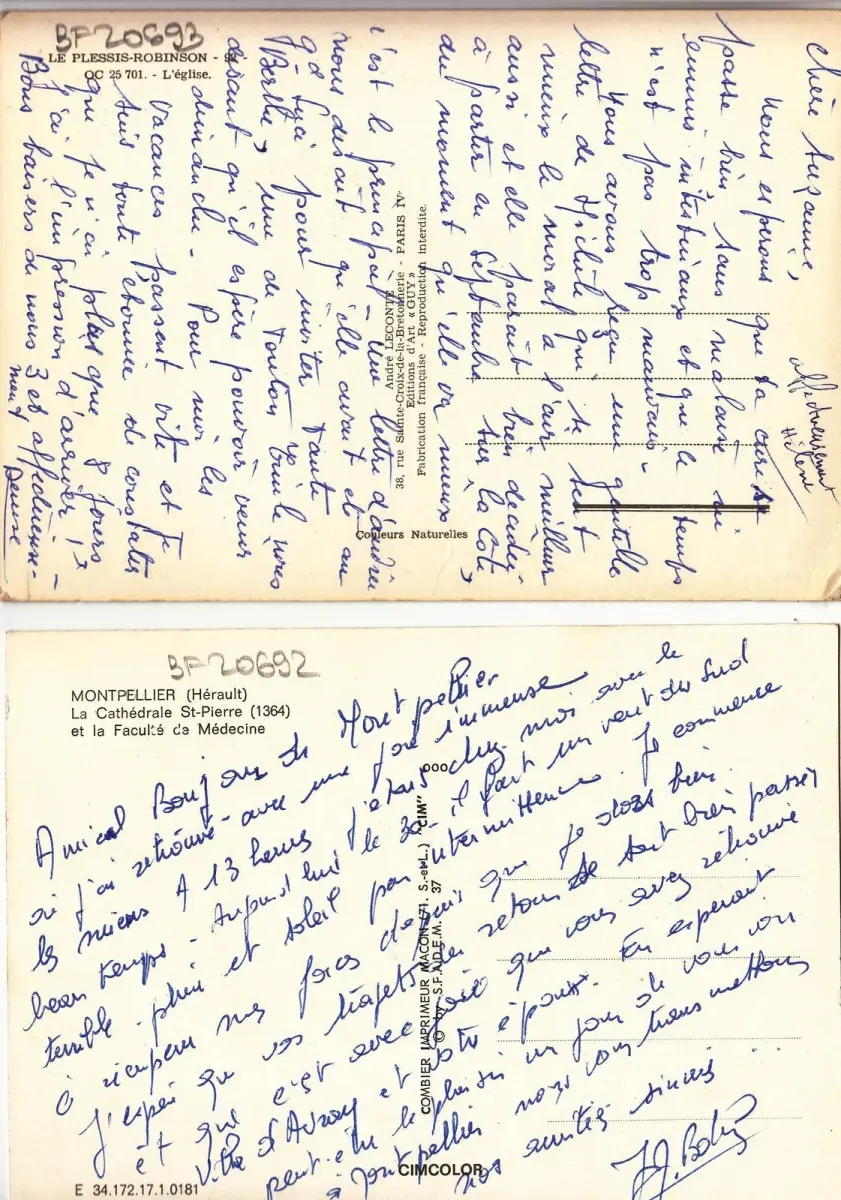 BF20693
LE PLESSIS-ROBINSON - 92
OC 25 701. - L'église.
André LECONTE
38, rue Sainte-Croix-de-la-Bretonnerie - PARIS IVe
Editions d'Art «GUY»
Fabrication française - Reproduction interdite.
Couleurs Naturelles
Chère Suzanne,
Nous espérons que ta cure se
passe bien sans malaise ni
ennuis intestinaux et que le temps
n'est pas trop mauvais -
Nous avons reçu une gentille
lettre de qui se sent
mieux le moral a l'air meilleur
aussi et elle paraît bien décidée
à partir en Septembre sur la Côte,
du moment qu'elle va mieux
c'est le principal - Une lettre d'Andrée
nous disait qu'elle avait et au
pour inviter Tante
Berthe, une de Tonton
disant qu'il espère pouvoir venir
dimanche - Pour moi les
Vacances passent vite et je
suis toute étonnée de constater
que je n'ai plus que 8 jours
j'ai l'impression d'arriver !
Bons baisers de nous 3 et affectueuse-
ment Denise
affectueusement
Hélène
BF20692
MONTPELLIER (Hérault)
La Cathédrale St-Pierre (1364)
et la Faculté de Médecine
Amical Bonjour de Montpellier
où j'ai retrouvé - avec une joie immense
les miens A 13 heures j'étais chez moi avec le
beau temps - Aujourd'hui le 30 - il fait un vent du Sud
terrible - pluie et soleil par intermittence. Je commence
à récupérer mes forces depuis que je dors bien.
J'espère que vos trajets de retour se sont bien passés
et que c'est avec joie que vous avez retrouvé
Ville d'Avray et votre épouse. En espérant
peut-être le plaisir un jour de vous voir
à Montpellier nous vous transmettons
nos amitiés sincères ...
COMBIER IMPRIMEUR MACON (71. S.-et-L.) "CIM"
© by S.P.A.D.E.M. 37
CIMCOLOR
E 34.172.17.1.0181